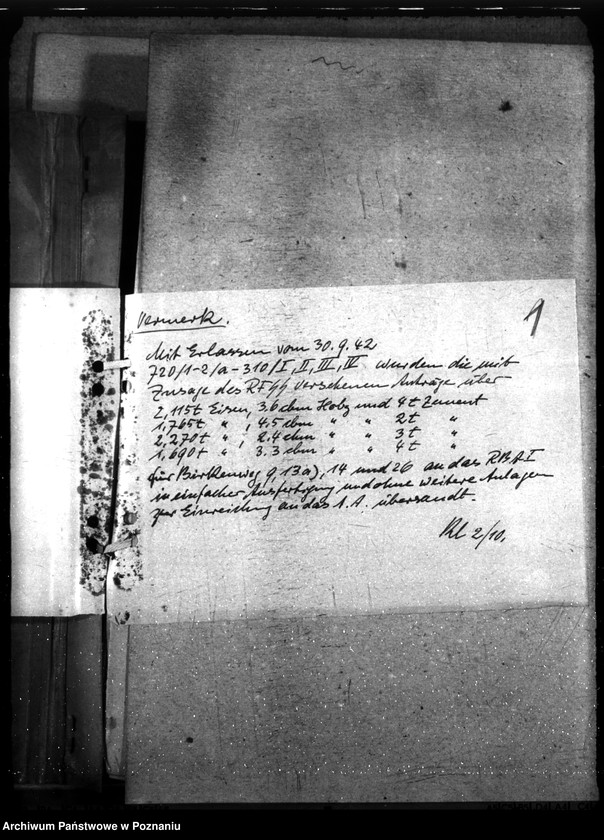 1
Vermerk.
Mit Erlassen vom 30.9.42
720/1-2/a-310/I, II, III, IV wurden die mit
Zusage des RFSS versehenen Anträge über
2,115t Eisen, 3.6 cbm Holz und 4t Zement
1,765t " , 4.5 cbm " " 2t "
2,270t " , 2.4 cbm " " 3t "
1,690t " 3.3 cbm " " 4t "
für Birkenweg 9, 13a), 14 und 26 an das RBA I
in einfacher Ausfertigung und ohne weitere Anlagen
zur Einreichung an das A.A. übersandt.
Kl 2/10.
Archiwum Państwowe w Poznaniu